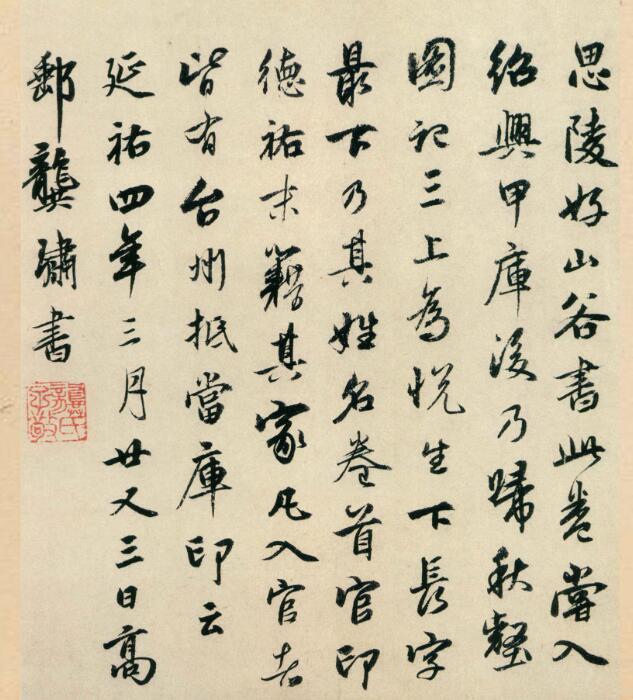 思陵好山谷書此卷嘗入
紹興甲庫後乃歸秋壑
圖記三上為悅生下長字
最下乃其姓名卷首官印
德祐末籍其家凡入官者
皆有台州抵當庫印云
延祐四年三月廿又三日高
郵龔璛書